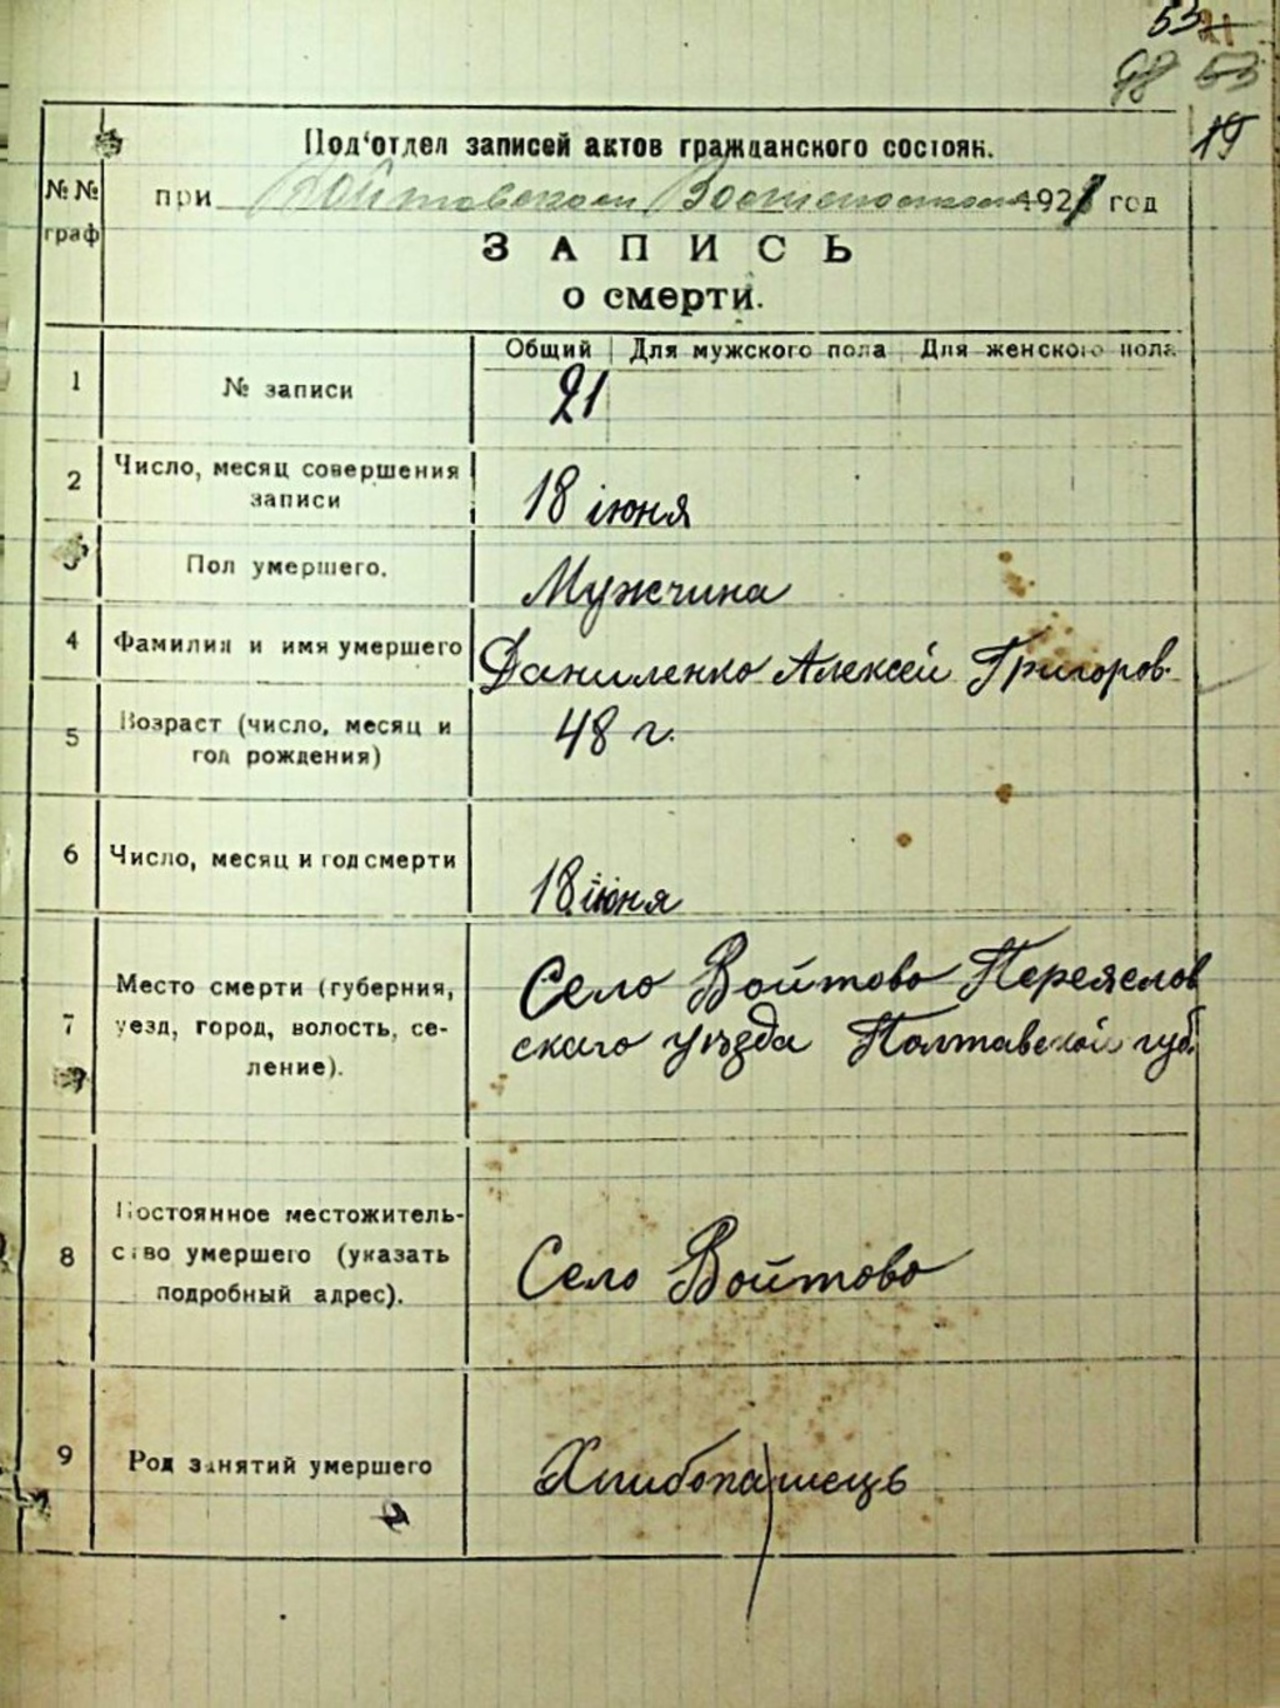 53 21
98 53
19
Под‘отдел записей актов гражданского состоян.
№ №
граф
при Войтовском 192 год
ЗАПИСЬ
о смерти.
Общий Для мужского пола Для женского пола
1 № записи 21
2 Число, месяц совершения
записи 18 іюня
3 Пол умершего. Мужчина
4 Фамилия и имя умершего Даниленко Алексей Григоров.
5 Возраст (число, месяц и
год рождения) 48 г.
6 Число, месяц и год смерти 18 іюня
7 Место смерти (губерния, Село Войтово Переяслов
уезд, город, волость, се- скаго уѣзда Полтавской губ.
ление).
8 Постоянное местожитель-
ство умершего (указать Село Войтово
подробный адрес).
9 Род занятий умершего Хлибопашець